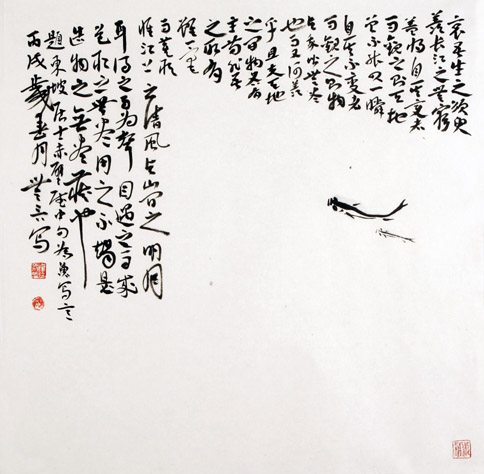 哀吾生之須臾
羨長江之無窮
蓋將自其變
而觀之則天地
曾不以一瞬
自其不變者
而觀之則物
與我皆無盡
也而又何羨
乎且夫天地
之間物各有
主苟非吾
之所有
雖一毫
而莫取
惟江上之清風與山間之明月
耳得之而為聲目遇之而成
色取之無盡用之不竭是
造物之無盡藏也
題東坡居士赤壁賦中句為魚寫意
丙戌歲春月寫